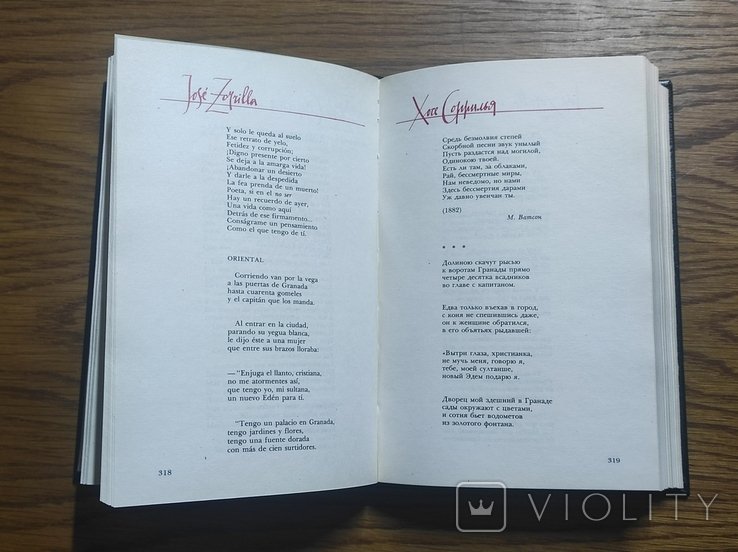 José Zorrilla
Y solo le queda al suelo
Ese retrato de yelo,
Fetidez y corrupción;
¡Digno presente por cierto
Se deja a la amarga vida!
¡Abandonar un desierto
Y darle a la despedida
La fea prenda de un muerto!
Poeta, si en el no ser
Hay un recuerdo de ayer,
Una vida como aquí
Detrás de ese firmamento...
Conságrame un pensamiento
Como el que tengo de tí.
ORIENTAL
Corriendo van por la vega
a las puertas de Granada
hasta cuarenta gomeles
y el capitán que los manda.
Al entrar en la ciudad,
parando su yegua blanca,
le dijo éste a una mujer
que entre sus brazos lloraba:
—"Enjuga el llanto, cristiana,
no me atormentes así,
que tengo yo, mi sultana,
un nuevo Edén para tí.
"Tengo un palacio en Granada,
tengo jardines y flores,
tengo una fuente dorada
con más de cien surtidores.
318
Хосе Соррилья
Средь безмолвия степей
Скорбной песни звук унылый
Пусть раздастся над могилой,
Одинокою твоей.
Есть ли там, за облаками,
Рай, бессмертные миры,
Нам неведомо, но нами
Здесь бессмертия дарами
Уж давно увенчан ты.
(1882)
М. Ватсон
* * *
Долиною скачут рысью
к воротам Гранады прямо
четыре десятка всадников
во главе с капитаном.
Едва только въехав в город,
с коня не спешившись даже,
он к женщине обратился,
в его объятьях рыдавшей:
«Вытри глаза, христианка,
не мучь меня, говорю я,
тебе, моей султанше,
новый Эдем подарю я.
Дворец мой здешний в Гранаде
сады окружают с цветами,
и сотня бьет водометов
из золотого фонтана.
319
VIOLITY